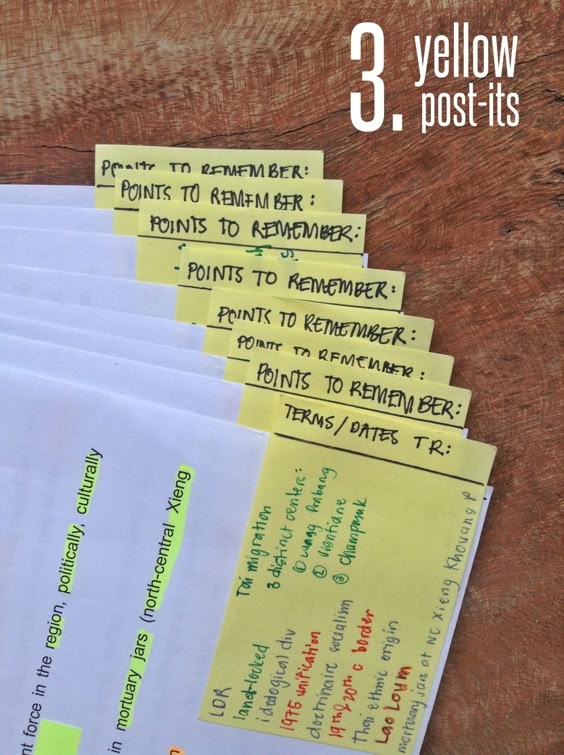 3. yellow
post-its
POINTS TO REMEMBER:
POINTS TO REMEMBER:
POINTS TO REMEMBER:
POINTS TO REMEMBER:
POINTS TO REMEMBER:
POINTS TO REMEMBER:
POINTS TO REMEMBER:
TERMS/DATES TR:
LDR
land-locked
ideological div
1975 unification
doctrinaire socialism
19th & 20th c border
Thai ethnic origin
Lao Loum
mortuary jars at NC Xieng Khouang P
Tai migration
3 distinct centers:
① Luang Prabang
② vientiane
③ champasak
nt force in the region, politically, culturally
in mortuary jars (north-central Xieng